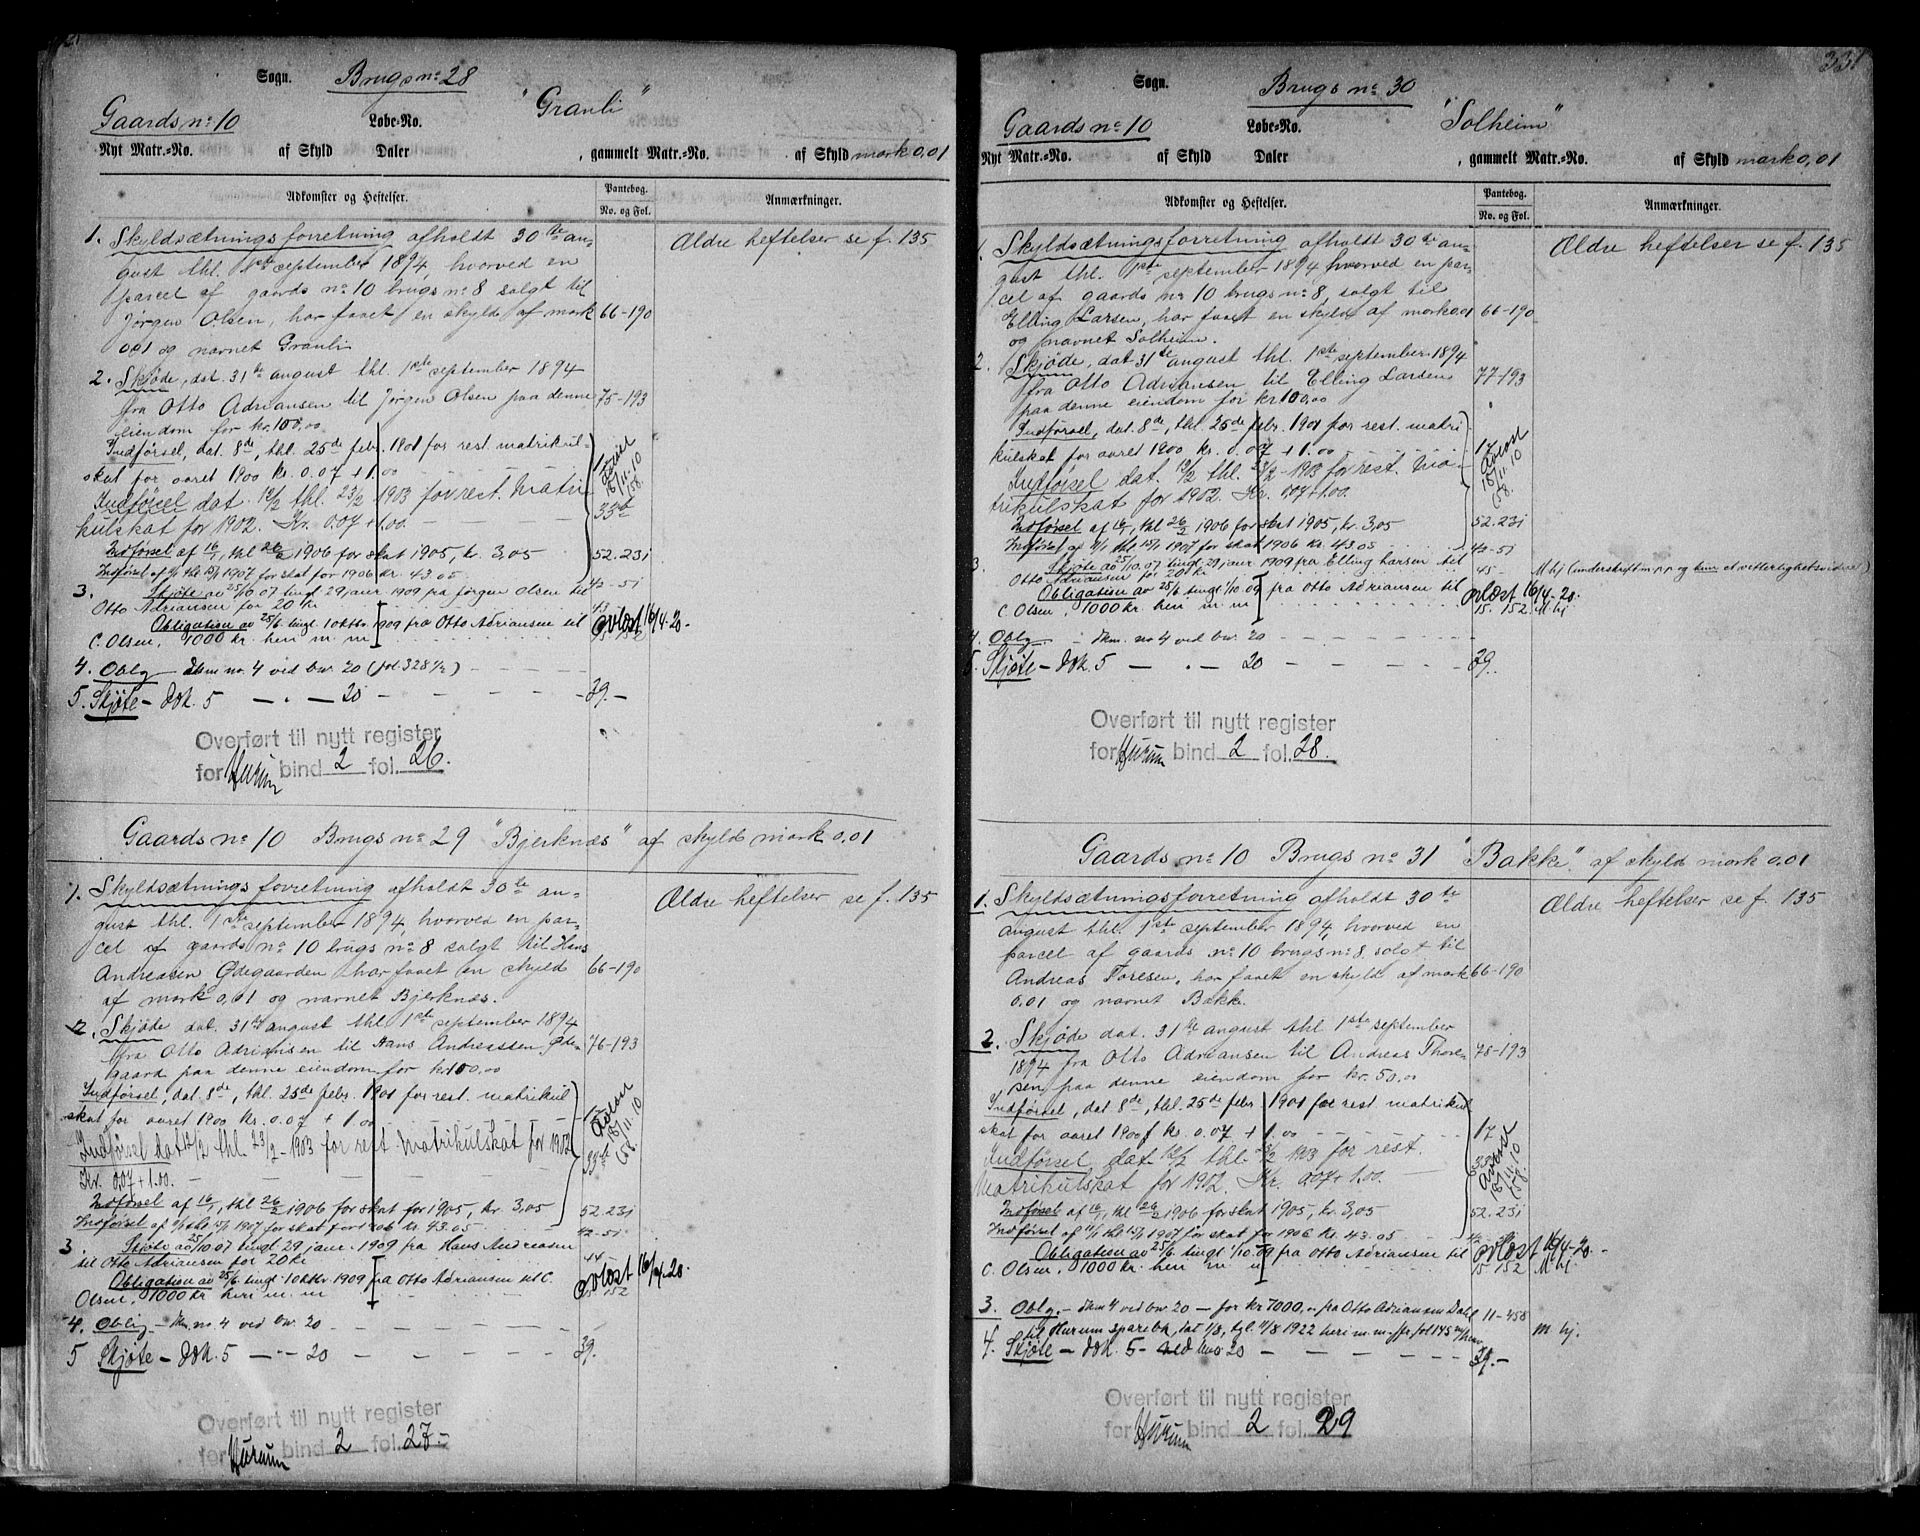 Sogn. Brugs nº 28
"Granli"
Gaards nº 10 Løbe-No.
Nyt Matr.-No. af Skyld Daler , gammelt Matr.-No. af Skyld mark 0,01
Adkomster og Heftelser. Pantebog. No. og Fol. Anmærkninger.
1. Skyldsætningsforretning afholdt 30te au- Ældre heftelser se f. 135
gust thl. 1ste september 1894, hvorved en
parcel af gaards nº 10 brugs nº 8 solgt til
Jørgen Olsen, har faaet en skyld af mark 66-190
0,01 og navnet Granli
2. Skjøde, dat. 31te august thl. 1ste september 1894
fra Otto Adriansen til Jørgen Olsen paa denne 75-193
eiendom for kr. 100,00
Indførsel, dat. 8de, thl. 25de febr. 1901 for rest. matrikul
skat for aaret 1900 Kr. 0.07 + 1.00
Indførsel dat. 12/2 thl. 23/2 1903 for rest. Matri
kulskat for 1902. Kr. 0.07 + 1.00.
Indførsel af 16/1, thl 26/2 1906 for skat 1905, kr. 3,05 52.231
Indførsel af 11/1 thl 15/1 1907 for skat for 1906 kr. 43.05 42-51
3. Skjøte av 25/10 07 tingl. 29 januar 1909 fra Jørgen Olsen til
Otto Adriansen for 20 kr 43
Obligation av 25/6 tingl 1 oktbr. 1909 fra Otto Adriansen til
C. Olsen, 1000 kr. heri m. m Avlæst 16/4-20.
4. Oblg – Dkm no. 4 ved bn. 20 (fol 328 1/2)
5. Skjøte – Dok. 5 – " – 20 – 39.
Overført til nytt register
for Hurum bind 2 fol. 26.
Gaards nº 10 Brugs nº 29 "Bjerknæs" af skyld mark 0,01
1. Skyldsætningsforretning afholdt 30te au- Ældre heftelser se f. 135
gust thl. 1ste september 1894, hvorved en par-
cel af gaards nº 10 brugs nº 8 solgt til Hans
Andreasen Ødegaarden har faaet en skyld 66-190
af mark 0,01 og navnet Bjerknæs.
2. Skjøde dat. 31te august thl. 1ste september 1894
fra Otto Adriansen til Hans Andreassen Øde- 76-193
gaard paa denne eiendom for kr 100,00
Indførsel, dat. 8de, thl. 25de febr. 1901 for rest. matrikul
skat for aaret 1900 Kr. 0.07 + 1.00
Indførsel dat 12/2 thl. 23/2-1903 for rest Matrikulskat for 1902
Kr. 0,07 + 1.00.
Indførsel af 16/1, thl 26/2 1906 for skat for 1905, kr. 3,05 52.231
Indførsel af 11/1 thl 15/1 1907 for skat for 1906 kr 43.05 42-51
3. Skjøte av 25/10 07 tingl 29 januar 1909 fra Hans Andreasen
til Otto Adriansen for 20 kr 44
Obligation av 25/6 tingl. 1 oktbr 1909 fra Otto Adriansen til C.
Olsen, 1000 kr heri m. m Avlæst 16/4-20. 152
4. Oblig – Dkm. no. 4 ved bn. 20
5 Skjøte – Dok. 5 – " – 20 39.
Overført til nytt register
for Hurum bind 2 fol. 27.
331
Sogn. Brugs nº 30
"Solheim"
Gaards nº 10 Løbe-No.
Nyt Matr.-No. af Skyld Daler , gammelt Matr.-No. af Skyld mark 0,01
Adkomster og Heftelser. Pantebog. No. og Fol. Anmærkninger.
1. Skyldsætningsforretning afholdt 30te au- Ældre heftelser se f. 135
gust thl. 1ste september 1894 hvorved en par-
cel af gaards nº 10 brugs nº 8, solgt til
Elling Larsen, har faaet en skyld af mark 0,01 66-190
og navnet Solheim.
2. Skjøde, dat 31te august thl. 1ste september 1894
fra Otto Adriansen til Elling Larsen 77-193
paa denne eiendom for kr 100,00
Indførsel, dat. 8de, thl. 25de febr. 1901 for rest. matri
kulskat for aaret 1900 kr. 0.07 + 1.00 17
Indførsel dat. 12/2 thl. 23/2-1903 for rest. Ma-
trikulskat for 1902. Kr. 0,07 + 1.00.
Indførsel af 16/1, thl 26/2 1906 for skat 1905, kr. 3,05 52.231
Indførsel af 11/1 thl 15/1 1907 for skat 1906 kr 43.05 42-51
3. Skjøte av 25/10.07 tingl. 29 januar 1909 fra Elling Larsen til 45-
Otto Adriansen for 20 kr
Obligation av 25/6 tingl 1/10 09 fra Otto Adriansen til Avlæst 16/4-20.
C. Olsen, 1000 kr. heri m m 15. 152 M hj
4. Oblg – Dkm. no 4 ved bn. 20
5. Skjøte – Dok. 5 – " – 20 39.
Overført til nytt register
for Hurum bind 2 fol. 28.
Gaards nº 10 Brugs nº 31 "Bakke" af skyld mark 0,01
1. Skyldsætningsforretning afholdt 30te Ældre heftelser se f. 135
august thl. 1ste september 1894, hvorved en
parcel af gaards nº 10 brugs nº 8, solgt til
Andreas Toresen, har faaet en skyld af mark 66-190
0.01 og navnet Bakke.
2. Skjøde dat. 31te august thl. 1ste september
1894 fra Otto Adriansen til Andreas Thore- 78-193
sen paa denne eiendom for kr. 50,00
Indførsel, dat. 8de, thl. 25de febr 1901 for rest. matrikul
skat for aaret 1900 kr. 0.07 + 1.00 17
Indførsel dat. 12/2 thl. 23/2 1903 for rest.
Matrikulskat for 1902. Kr. 0,07 + 1.00.
Indførsel af 16/1, thl 26/2 1906 for skat 1905, kr. 3,05 52.231
Indførsel af 11/1 thl 15/1 1907 for skat for 1906 kr. 43.05
Obligation av 25/6 tingl 1/10.09 fra Otto Adriansen til Avlæst 16/4-20.
C. Olsen, 1000 kr. heri m m 15 152 M hj.
3. Oblg. – Dkm 4 ved bn 20 – for kr 7000,00 fra Otto Adriansen Dahl 11-458
til Hurum sparebk, dat 1/8, tgl. 11/8 1922 heri m. m. M hj.
4. Skjøte – Dok. 5 – ved bno 20 39.
Overført til nytt register
for Hurum bind 2 fol. 29